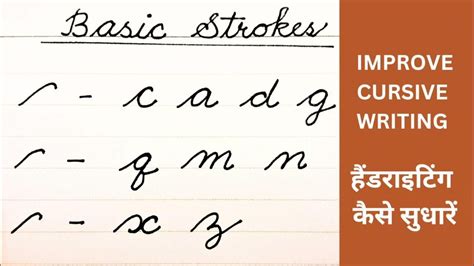 Basic Strokes
╭ - c a d g
╭ - q m n
╭ - x z
IMPROVE
CURSIVE
WRITING
हैंडराइटिंग
कैसे सुधारें